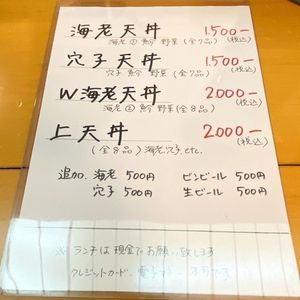 海老天丼 1,500-
海老① 魚介 野菜 (全7品) (税込)
穴子天丼 1,500-
穴子 魚介 野菜 (全7品) (税込)
W海老天丼 2,000-
海老② 魚介 野菜 (全8品) (税込)
上天丼 2,000-
(全8品) 海老.穴子.etc. (税込)
追加. 海老 500円 ビンビール 500円
穴子 500円 生ビール 500円
※ ランチは現金でお願い致します
クレジットカード、電子マネー 不可です